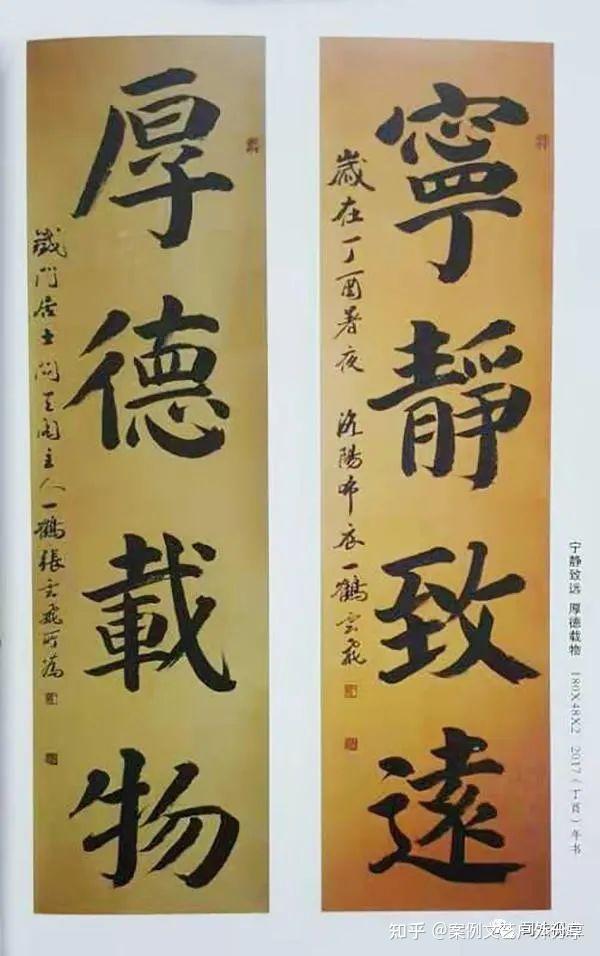 寧靜致遠
歲在丁酉暑夜 洛陽布衣一鶴雲飛
厚德載物
龍門居士問天閣主人一鶴張雲飛所為
宁静致远 厚德载物 180X48X2 2017(丁酉)年书
知乎 @案例文艺